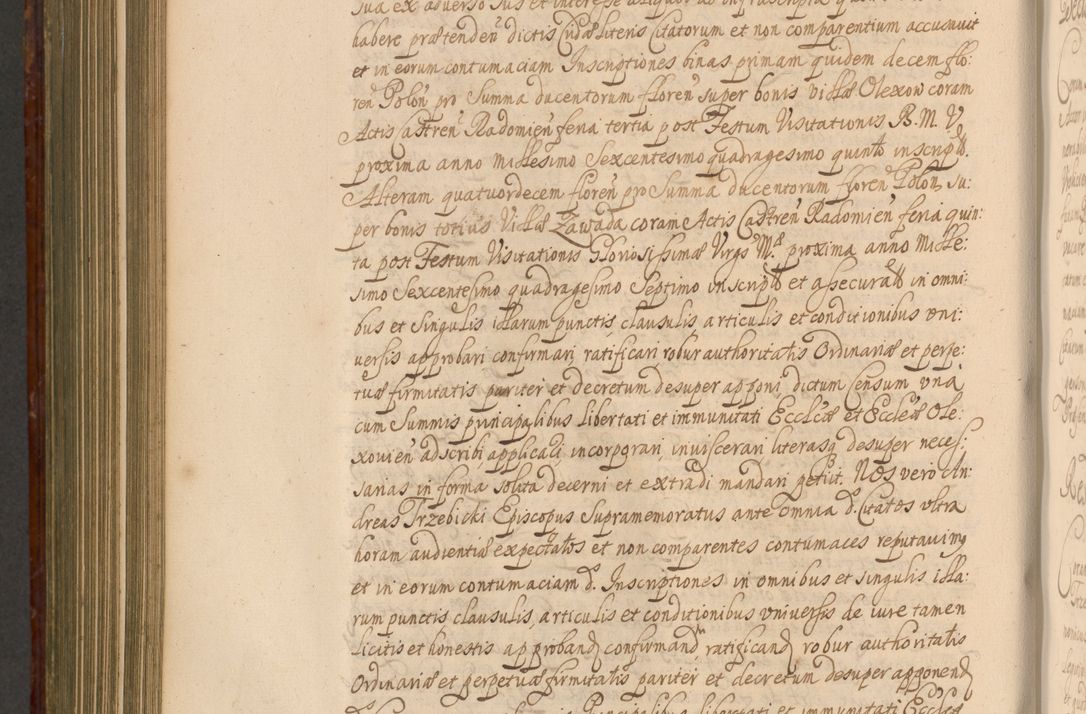 sua ex adverso jus et interesse aliquod ad infrascripta
habere prætenden̄ dictis Cridæ literis Citatorum et non comparentium accusavit
et in eorum contumaciam Inscriptiones binas primam quidem decem flo:
ren̄ Polon̄ pro Summa ducentorum floren̄ super bonis villæ Olexow coram
Actis Castren̄ Radomien̄ feria tertia post Festum Visitationis B. M. V.
proxima anno Millesimo Sexcentesimo quadragesimo quinto inscript.
Alteram quatuordecem floren̄ pro Summa ducentorum floren̄ Polon̄ su:
per bonis totius Villæ Zawada coram Actis Castren̄ Radomien̄ feria quin:
ta post Festum Visitationis Gloriosissimæ Virgs Mæ proxima anno Mille:
simo Sexcentesimo quadragesimo Septimo inscript et assecurat in omni:
bus et singulis illarum punctis, clausulis, articulis et conditionibus uni:
versis approbari confirmari ratificari robur authoritatis Ordinariæ et perpe:
tuæ firmitatis pariter et decretum desuper apponi, dictum Censum una
cum Summis principalibus libertati et immunitati Ecclcæ et Eccleæ Ole:
xovien̄ adscribi applicari, incorporari, inviscerari literasq desuper neces:
sarias in forma solita decerni et extradi mandari petiit. Nos vero An:
dreas Trzebicki Episcopus Supramemoratus ante omnia d. Citatos ultra
horam audientiæ expectatos et non comparentes contumaces reputavimq
et in eorum contumaciam d. Inscriptiones in omnibus et singulis illa:
rum punctis clausulis, articulis et conditionibus universis de iure tamen
licitis et honestis approband confirmand ratificand robur authoritatis
Ordinariæ et perpetuæ firmitatis pariter et decretum desuper apponend
Principalibus libertati et immunitati Ecclca